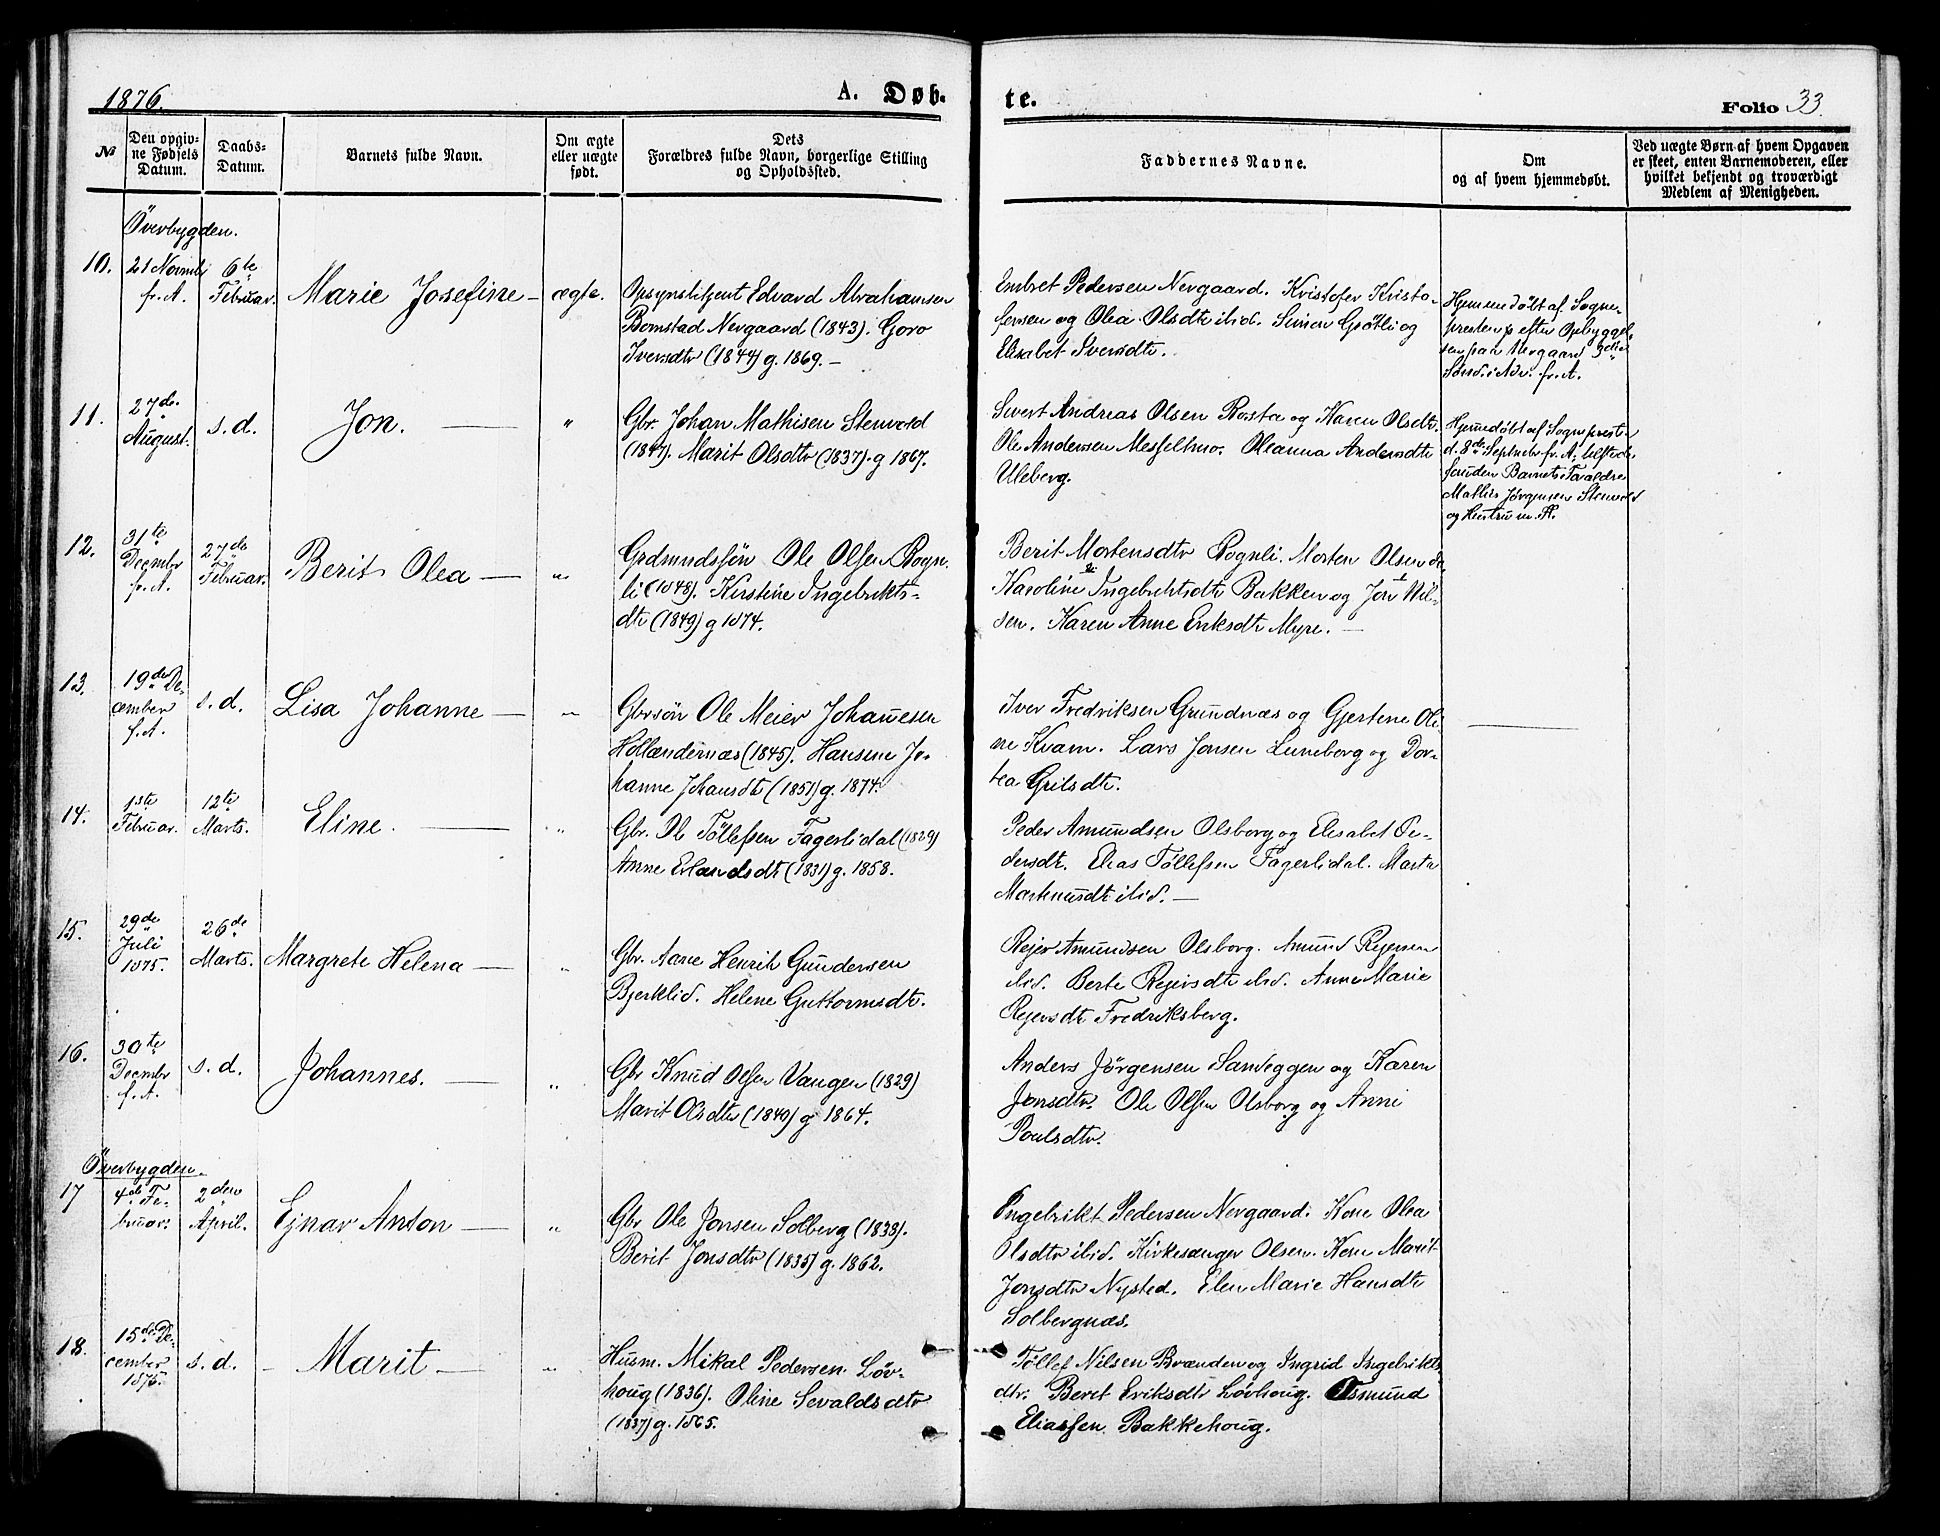 1876.
A. Døb-
te.
Folio 33
№
Den opgiv-
ne Fødsels
Datum.
Daabs-
Datum.
Barnets fulde Navn.
Om ægte
eller uægte
født.
Dets
Forældres fulde Navn, borgerlige Stilling
og Opholdssted.
Faddernes Navne.
Om
og af hvem hjemmedøbt.
Ved uægte Børn af hvem Opgaven
er skeet, enten Barnemoderen, eller
hvilket bekjendt og troværdigt
Medlem af Menigheden.
Överbygden.
10.
21 Novmb
fr. A.
6te
Februar.
Marie Josefine
ægte.
Opsynsbetjent Edvard Abrahamsen
Bomstad Nergaard (1843). Goro
Iversdtr (1844) g. 1869. —
Embret Pedersen Nergaard. Kristofer Kristo-
fersen og Olea Olsdtr ibid. Simon Grøtli og
Elisabet Iversdtr.
Hjemmedøbt af Sogne-
presten efter Opbyggel-
sen paa Nergaard 3die
Sønd. i Adv. fr. A.
11.
27de
August.
s. d.
Jon. —
"
Gbr. Johan Mathisen Stenvold
(1847). Marit Olsdtr (1837). g 1867.
Sivert Andreas Olsen Rosta og Karen Olsdtr.
Ole Andersen Messeltmo. Oleanna Andersdtr
Uleberg.
Hjemmedøbt af Sognprest
d. 8de Septmbr fr. A.
foruden Barnets Forældre
Mathis Jørgensen Stenvold
og Hustru m. fl.
12.
31te
Decembr
fr. A.
27de
Februar.
Berit Olea —
"
Grdmandssøn Ole Olsen Rogn-
li (1848). Kirstine Ingebrikts-
dtr (1849) g 1874.
Berit Mortensdtr Rognli. Morten Olsen do.
Karoline Ingebrichtsdtr Bakken og Jon Nil-
sen. Karen Anne Eriksdtr Myre. —
13.
19de De-
cember
f. A.
s. d.
Lisa Johanne —
"
Gbrsön Ole Meier Johannesen
Hollændernæs (1845). Hansine Jo-
hanne Johansdtr (1851) g. 1874.
Iver Fredriksen Grundnæs og Gjertine Oli-
ne Kvam. Lars Jonsen Luneborg og Dor-
tea Grilsdtr.
14.
1ste
Februar.
12te
Marts.
Eline. —
"
Gbr. Ole Töllefsen Fagerlidal (1829)
Anne Erlandsdtr (1831) g. 1858.
Peder Amundsen Olsborg og Elisabet Pe-
dersdtr. Elias Töllefsen Fagerlidal. Marta
Markusdtr ibid. —
15.
29de
Juli
1875.
26de
Marts.
Margrete Helena —
"
Gbr. Aane Henrik Gundersen
Bjerklid. Helene Guttormsdtr.
Rejer Amundsen Olsborg. Amund Rejersen
ibid. Berte Rejersdtr ibid. Anne Marie
Rejersdtr Fredriksberg.
16.
30te
Decmbr
f. A.
s. d.
Johannes. —
"
Gbr Knud Olsen Vangen (1829)
Marit Olsdtr (1840) g 1864.
Anders Jörgensen Sandeggen og Karen
Jonsdtr. Ole Olsen Olsborg og Anne
Poulsdtr.
Överbygden.
17
4de Fe-
bruar.
2den
April.
Ejnar Anton —
"
Gbr Ole Jonsen Solberg (1838).
Berit Jonsdtr (1835) g. 1862.
Ingebrikt Pedersen Nergaard. Kone Olea
Olsdtr ibid. Kirkesanger Olsen. Kone Marit
Jonsdtr Nysted. Elen Marie Hansdtr
Solbergnæs.
18.
15de De-
cember
1875.
s. d.
— Marit —
"
Husm. Mikal Pedersen Löv-
houg (1836). Oline Sevaldsdtr
(1837) g. 1865.
Töllef Nilsen Branden og Ingrid Ingebrikts-
dtr. Beret Eriksdtr Lövhoug. Osmund
Eliassen Bakkehoug.